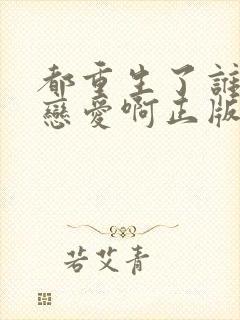 都重生了誰
戀愛啊正版
若艾青